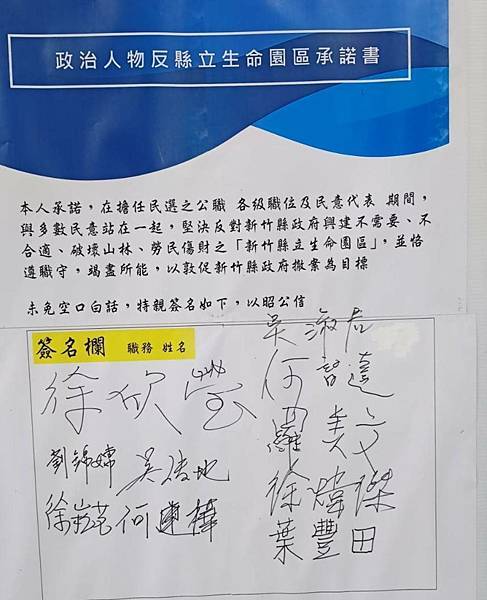 政治人物反縣立生命園區承諾書
本人承諾，在擔任民選之公職 各級職位及民意代表 期間，
與多數民意站在一起，堅決反對新竹縣政府興建不需要、不
合適、破壞山林、勞民傷財之「新竹縣立生命園區」，並恪
遵職守，竭盡所能，以敦促新竹縣政府撤案為目標
未免空口白話，特親簽名如下，以昭公信
簽名欄 職務 姓名
徐欣瑩
劉錦嬬 吳
何建樺
吳淑君
何智達
羅美文
徐煒傑
葉豐田